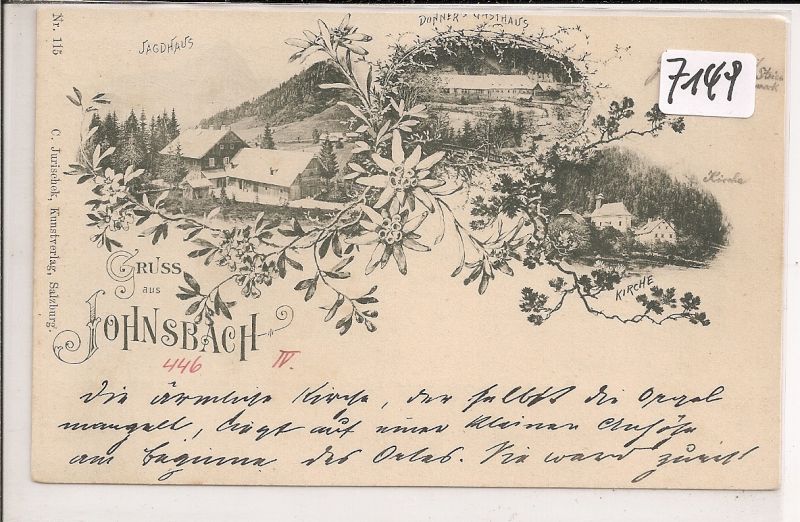 Nr. 115
C. Jurischek, Kunstverlag, Salzburg.
JAGDHAUS
DONNER'S GASTHAUS
7149
Kirche
KIRCHE
GRUSS
AUS
JOHNSBACH
446 IV.
Die ärmliche Kirche, der selbst die Orgel
mangelt, liegt auf einer kleinen Anhöhe
am Beginne des Ortes. Sie ward zuerst